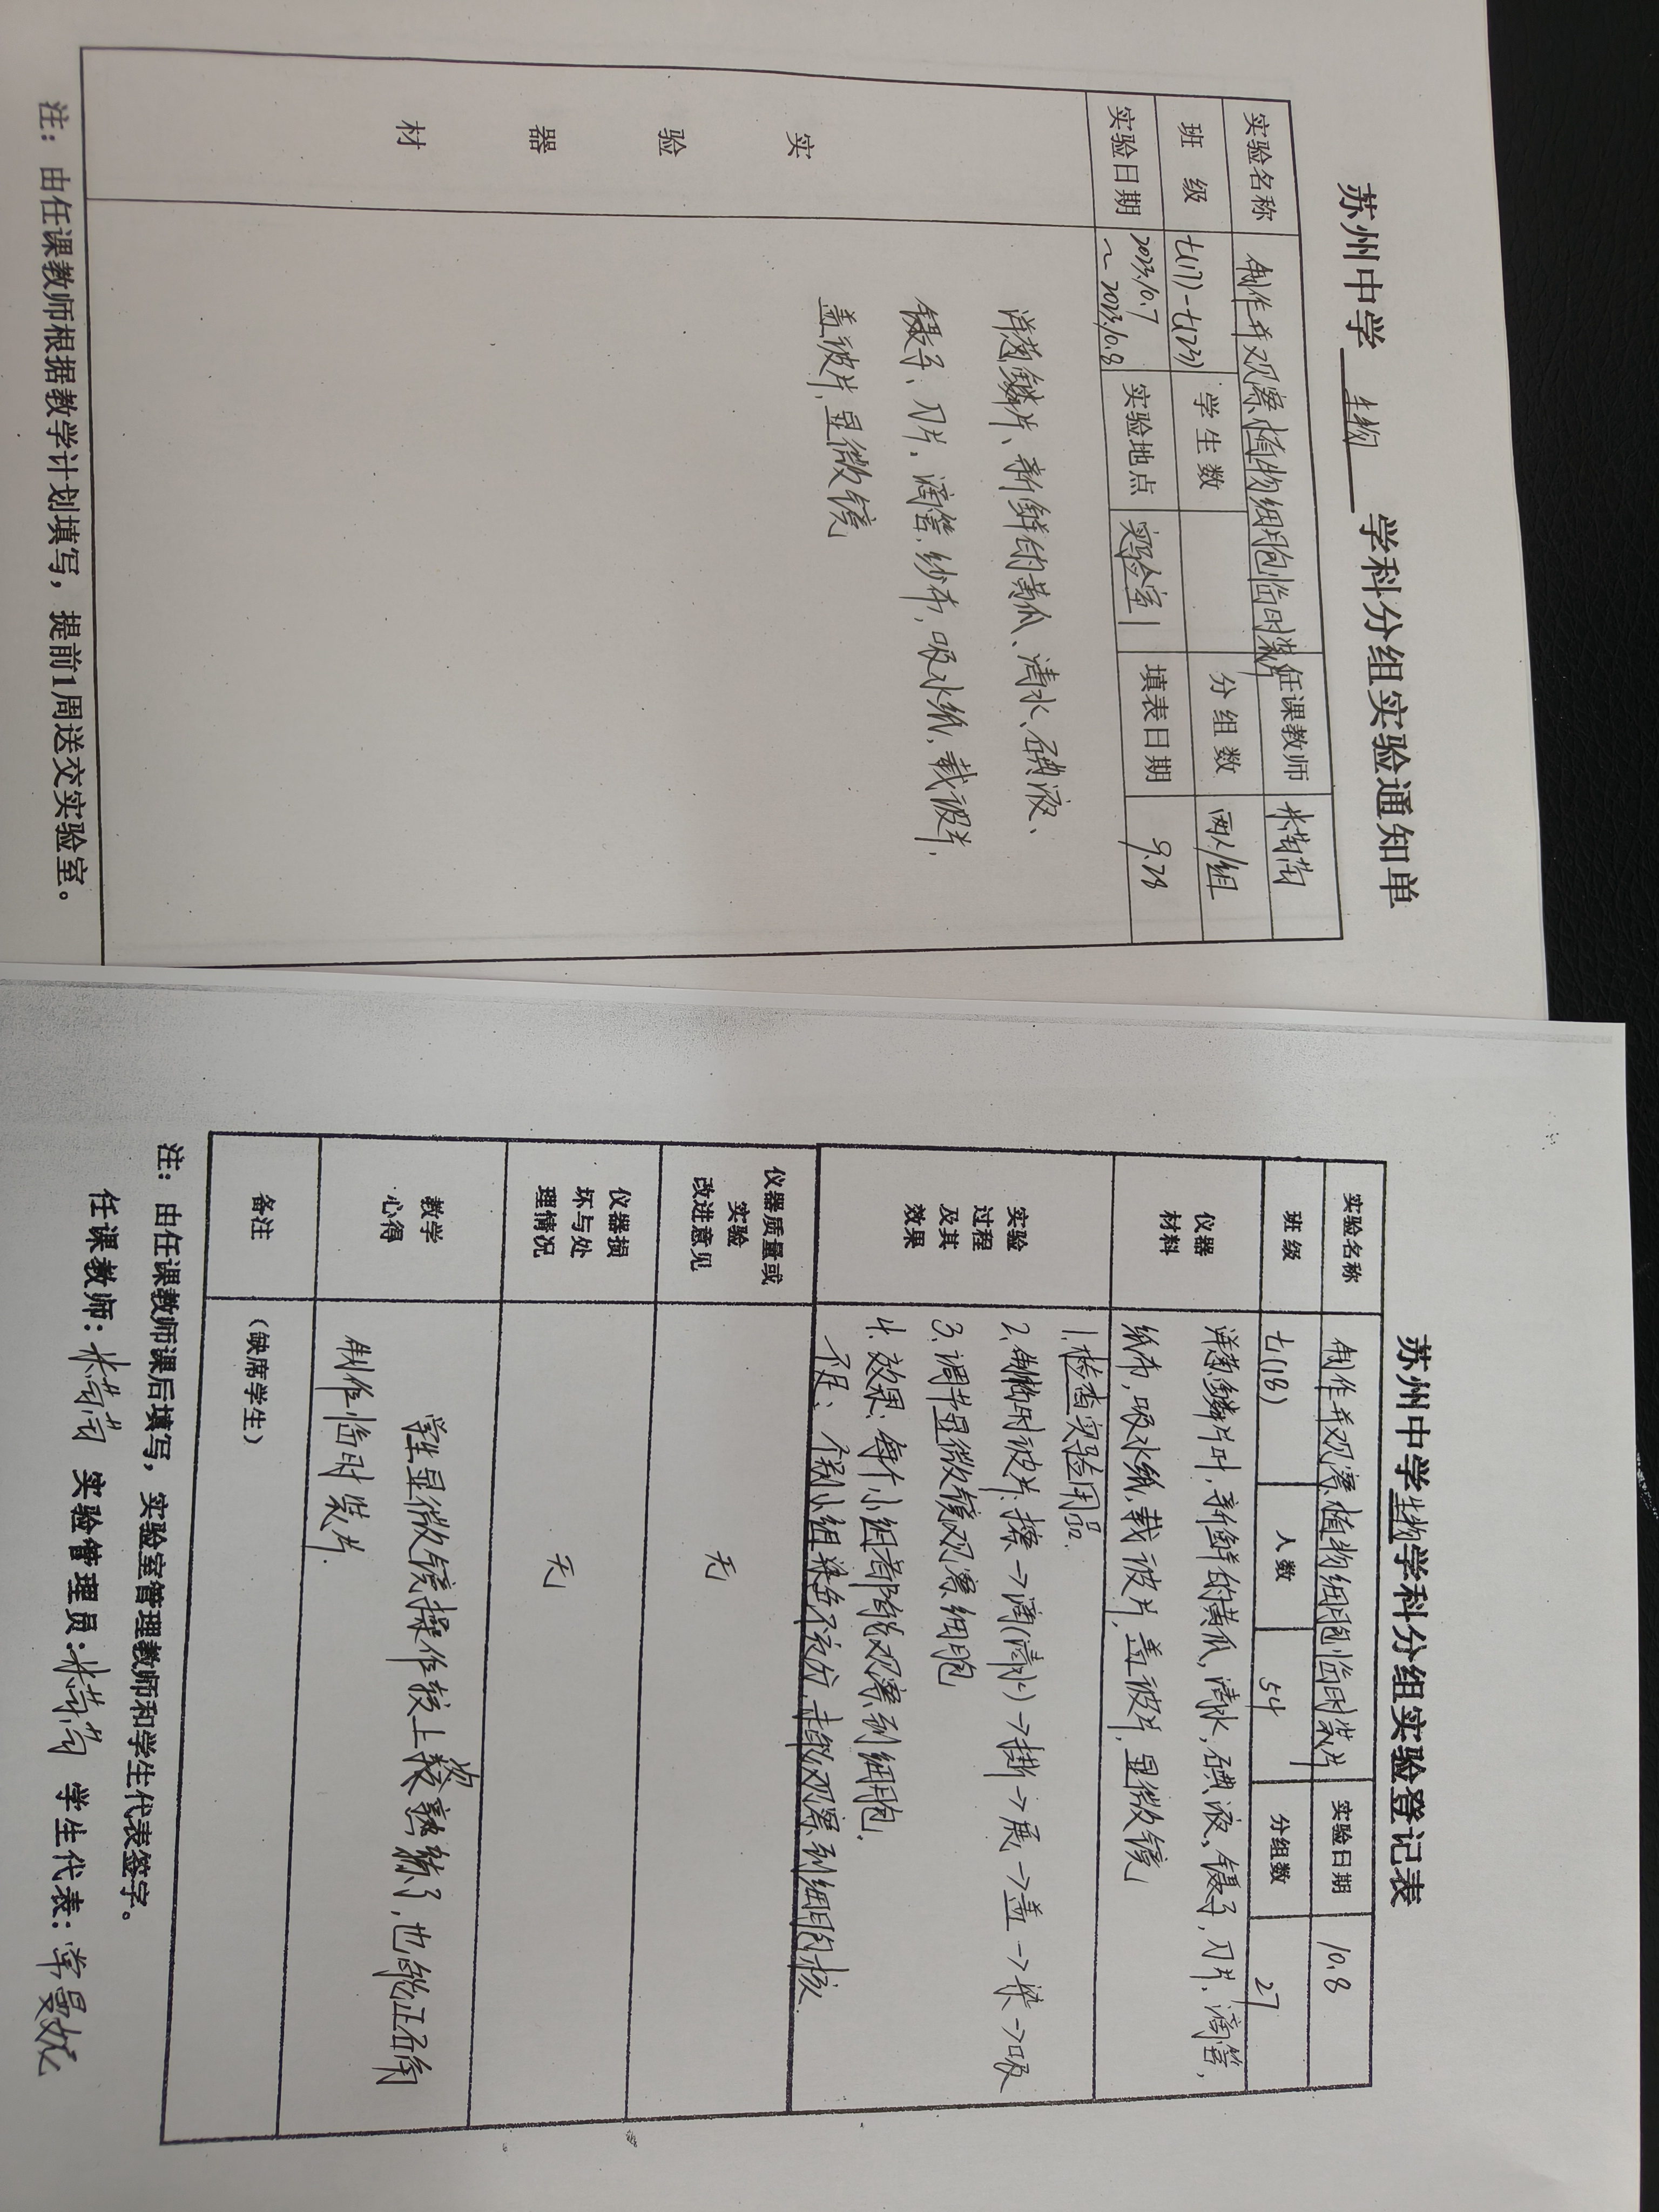 苏州中学 生物 学科分组实验通知单
实验名称 制作并观察植物细胞临时装片 任课教师
班 级 七(17)-七(23) 学生数 分组数 两人/组
实验日期 2023.10.7 ～2023.10.8 实验地点 实验室1 填表日期 9.28
实验器材
洋葱鳞片、新鲜的黄瓜、清水、碘液、
镊子、刀片、滴管、纱布、吸水纸、载玻片、
盖玻片、显微镜
注：由任课教师根据教学计划填写，提前1周送交实验室。
苏州中学生物学科分组实验登记表
实验名称 制作并观察植物细胞临时装片 实验日期 10.8
班级 七(18) 人数 54 分组数 27
仪器
材料
洋葱鳞片叶，新鲜的黄瓜，清水，碘液，镊子，刀片，滴管，
纱布，吸水纸，载玻片，盖玻片，显微镜
实验
过程
及其
效果
1.检查实验用品.
2.制临时装片：擦→滴(清水)→撕→展→盖→染→吸
3.调节显微镜观察细胞
4.效果：每个小组都能观察到细胞.
不足：个别小组染色不充分，未能观察到细胞核.
仪器质量或
实验
改进意见
无
仪器损
坏与处
理情况
无
教学
心得
学生显微镜操作较上次熟练了，也能正确
制作临时装片.
备注 （缺席学生）
注：由任课教师课后填写，实验室管理教师和学生代表签字。
任课教师： 实验管理员： 学生代表：常曼妮